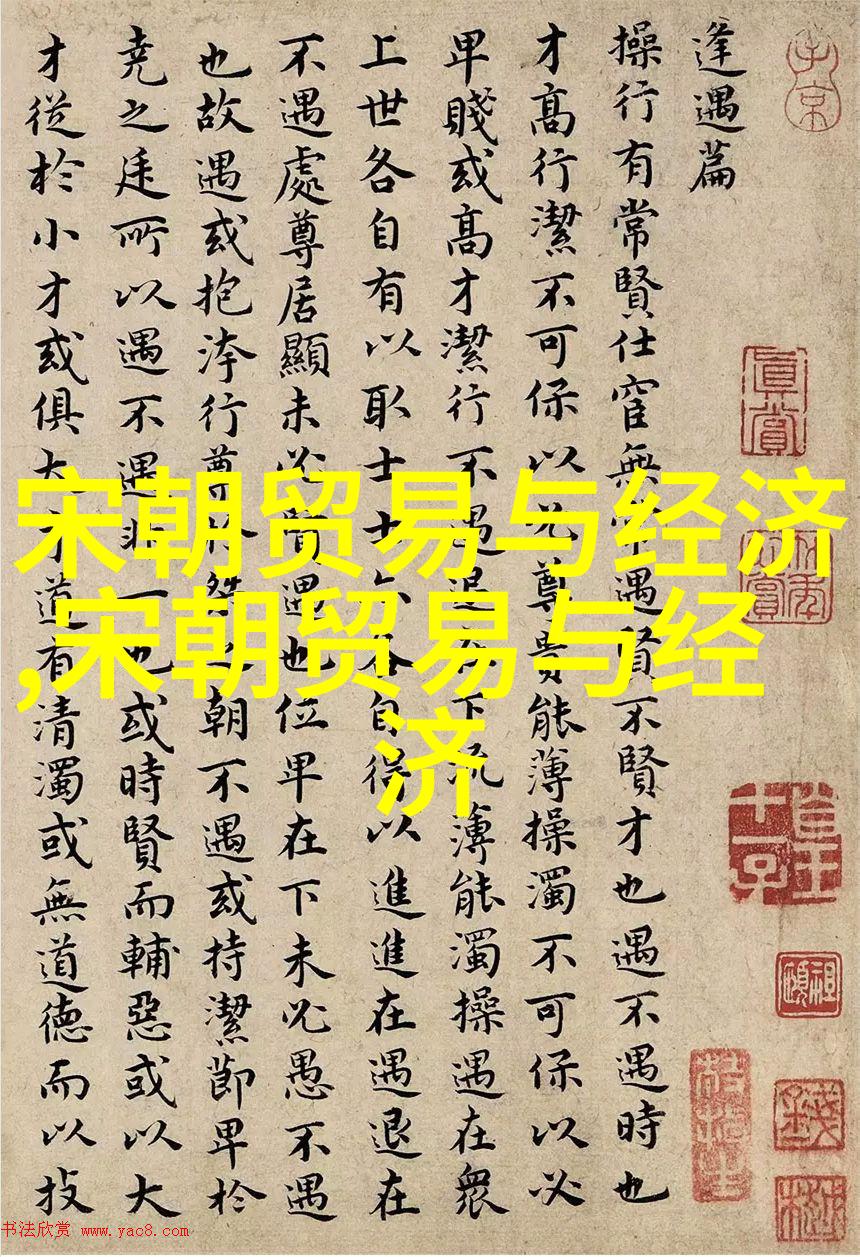 逢遇篇
操行有常賢仕宦無常遇賢不賢才也遇不遇時也
才髙行潔不可保以必尊貴能薄操濁不可保以必
卑賤或髙才潔行不遇退在下流薄能濁操遇在衆
上世各自有以取士士亦各自得以進進在遇退在
不遇處尊居顯未必賢遇也位卑在下未必愚不遇
也故遇或抱洿行尊於桀之朝不遇或持潔節卑於
堯之廷所以遇不遇非一也或時賢而輔惡或以大
才從於小才或俱大才道有清濁或無道德而以技
宋朝贸易与经济
,宋朝贸易与经
济
子京
真賞
书法欣赏 www.yac8.com